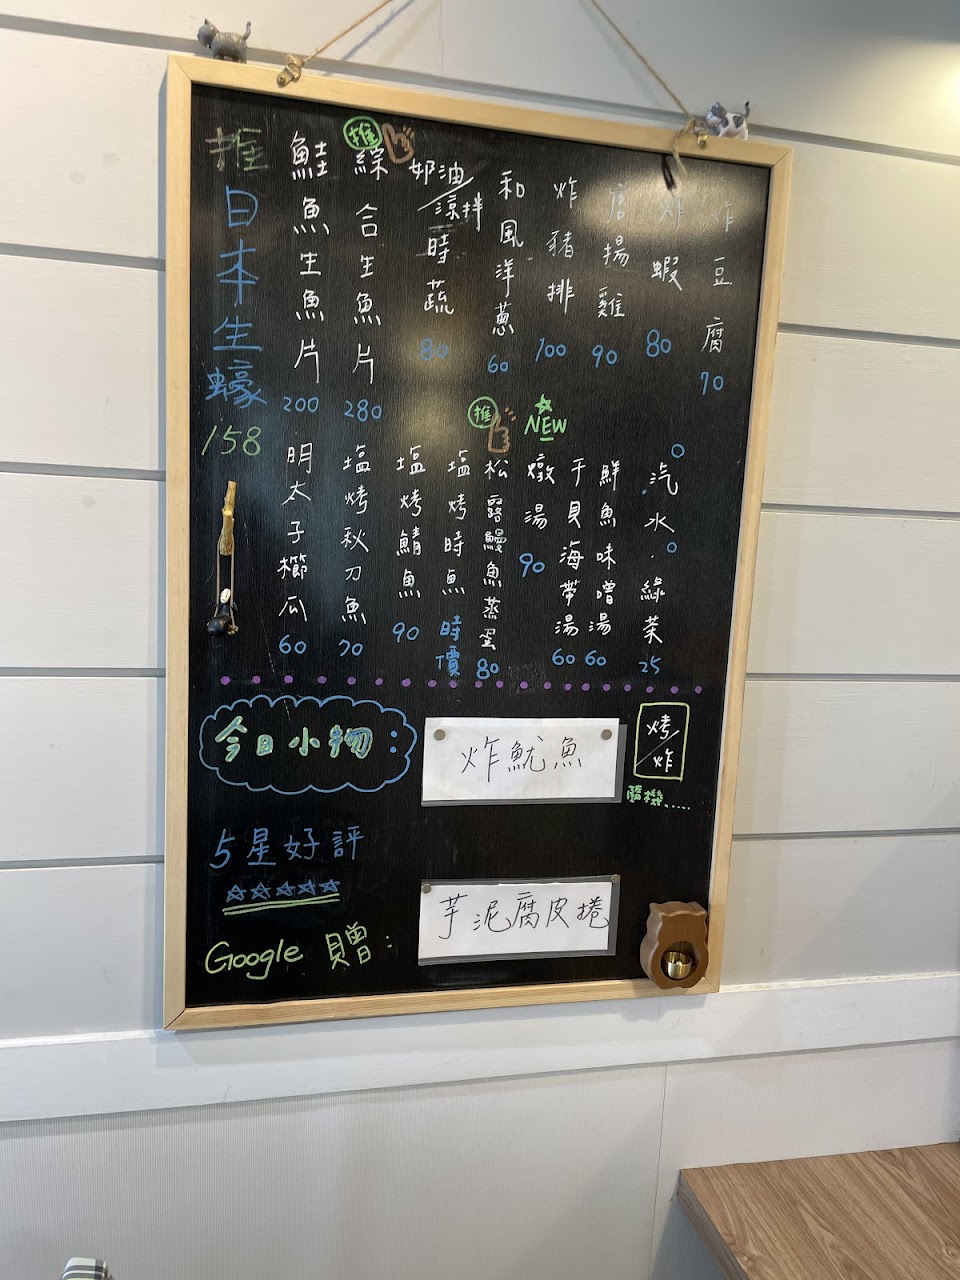 推
日本生蠔
158
鮭魚生魚片
200
推
綜合生魚片
280
奶油/涼拌
時蔬
80
和風洋蔥
60
炸豬排
100
唐揚雞
90
炸蝦
80
炸豆腐
70
明太子櫛瓜
60
塩烤秋刀魚
70
塩烤鯖魚
90
塩烤時魚
時價
推
松露鰻魚蒸蛋
80
NEW
燉湯
90
干貝海帶湯
60
鮮魚味噌湯
60
汽水.綠茶
25
今日小物:
炸魷魚
烤/炸
隨機.....
5星好評
☆☆☆☆☆
Google 贈:
芋泥腐皮捲